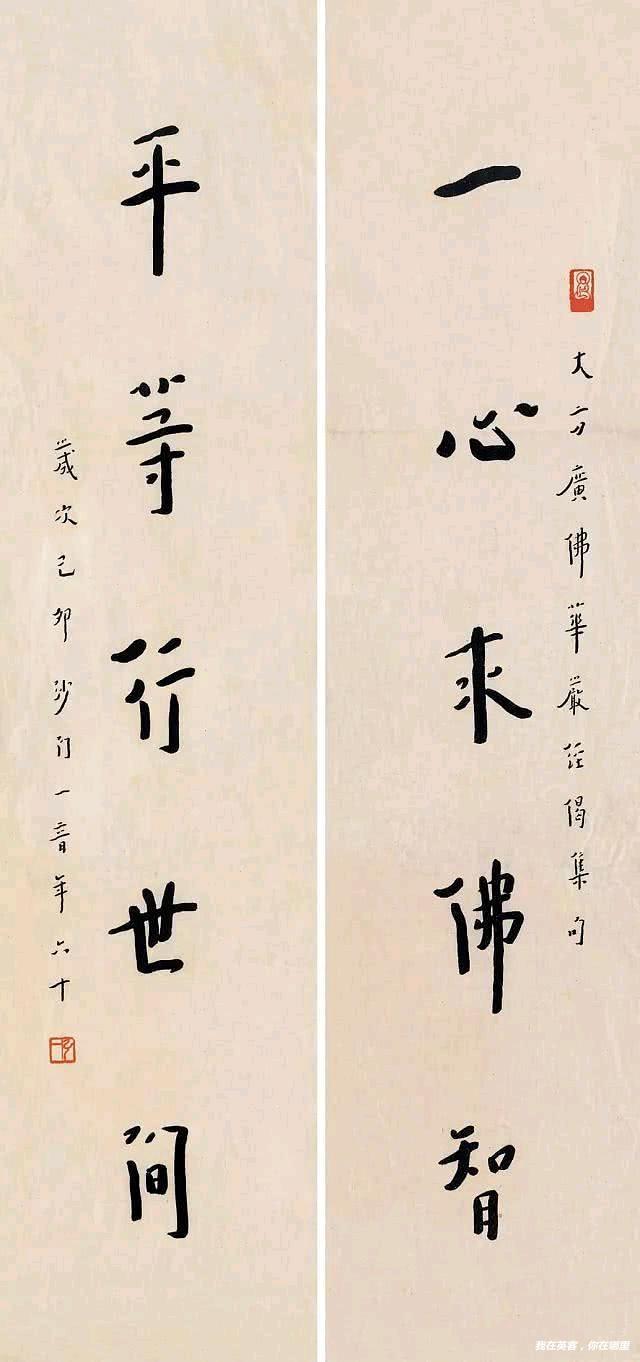 大方廣佛華嚴經偈集句
一心求佛智
平等行世間
歲次己卯沙門一音年六十
我在英客,你在哪里